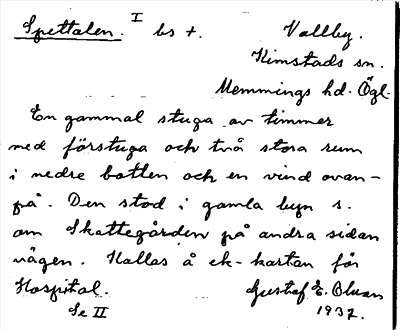 Spettalen. I bs +. Vallby.
Kimstads sn.
Memmings hd. Ögl.
En gammal stuga av timmer
med förstuga och två stora rum
i nedre botten och en vind ovan-
på. Den stod i gamla byn s.
om Skattegården på andra sidan
vägen. Kallas å ek-kartan för
Hospital. Gustaf E. Bluan
Se II 1937.